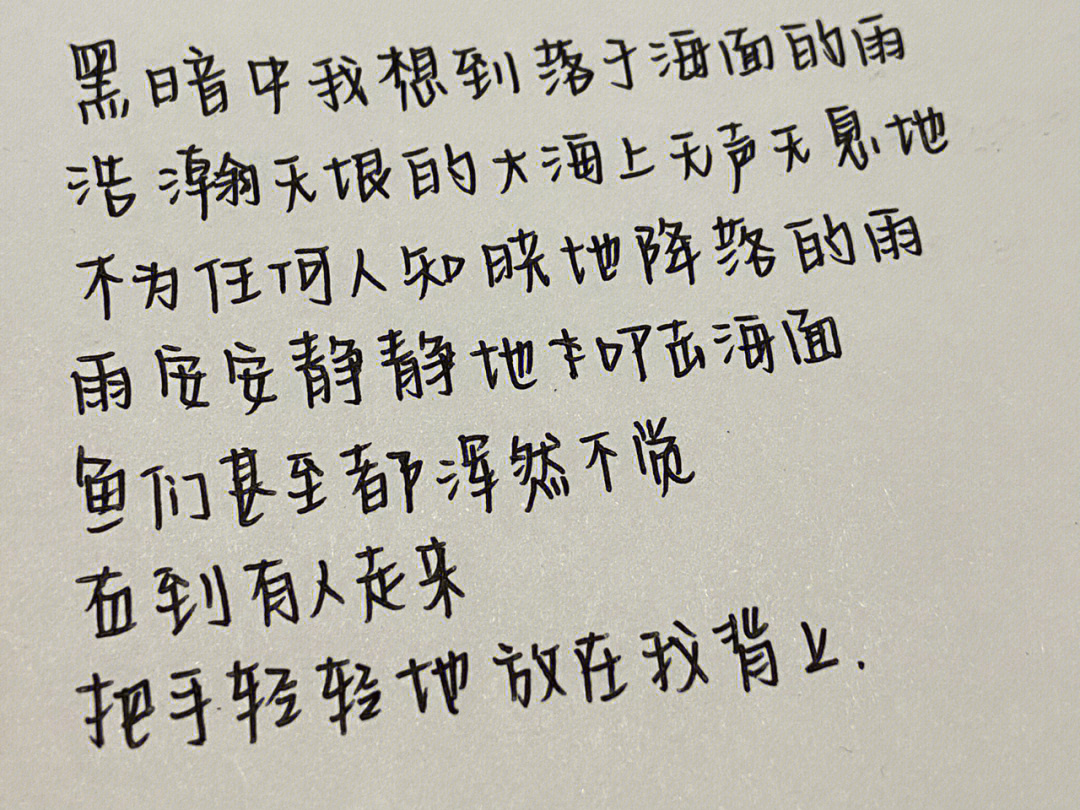 黑暗中我想到落于海面的雨
浩瀚无垠的大海上无声无息地
不为任何人知晓地降落的雨
雨安安静静地叩击海面
鱼们甚至都浑然不觉
直到有人走来
把手轻轻地放在我背上.